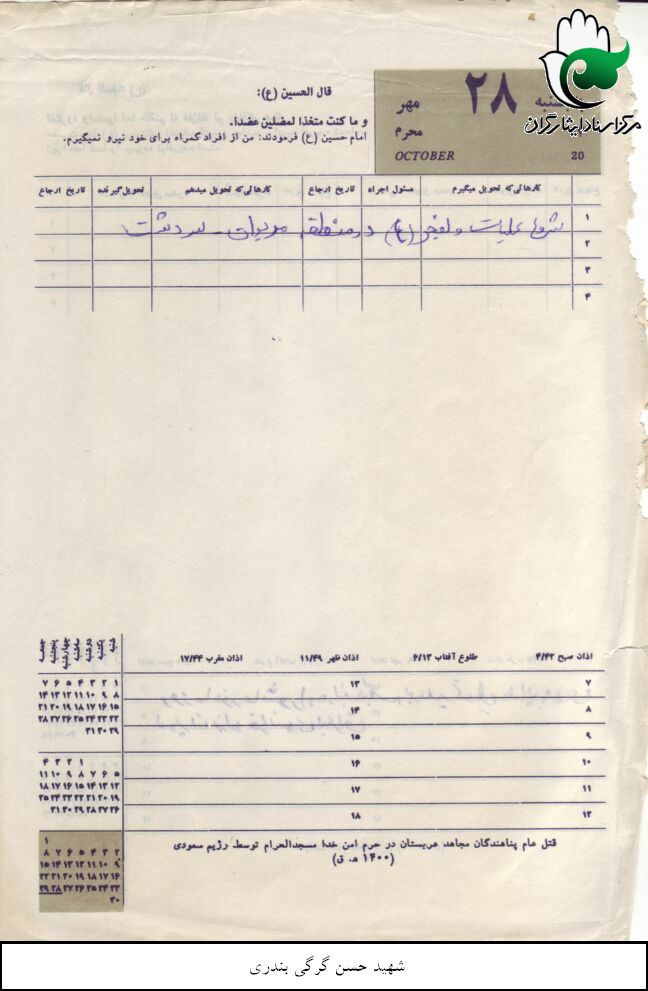 مرکز اسناد ایثارگران
شنبه ۲۸ مهر
محرم
20 OCTOBER
قال الحسین (ع):
و ما کنت متخذا لمضلین عضدا.
امام حسین (ع) فرمودند: من از افراد گمراه برای خود نیرو نمیگیرم.
کارهائی که تحویل میگیرم مسئول اجراء تاریخ ارجاع کارهائی که تحویل میدهم تحویل گیرنده تاریخ ارجاع
۱ شروع عملیات والفجر (۴) در منطقه مریوان - سردشت
۲
۳
۴
اذان صبح ۴/۴۲ طلوع آفتاب ۶/۱۳ اذان ظهر ۱۱/۴۹ اذان مغرب ۱۷/۴۴
۷ ۱۳
۸ ۱۴
۹ ۱۵
۱۰ ۱۶
۱۱ ۱۷
۱۲ ۱۸
شنبه یکشنبه دوشنبه سه‌شنبه چهارشنبه پنجشنبه جمعه
۱ ۲ ۳ ۴ ۵ ۶ ۷
۸ ۹ ۱۰ ۱۱ ۱۲ ۱۳ ۱۴
۱۵ ۱۶ ۱۷ ۱۸ ۱۹ ۲۰ ۲۱
۲۲ ۲۳ ۲۴ ۲۵ ۲۶ ۲۷ ۲۸
۲۹ ۳۰ ۳۱
۱ ۲ ۳ ۴
۵ ۶ ۷ ۸ ۹ ۱۰ ۱۱
۱۲ ۱۳ ۱۴ ۱۵ ۱۶ ۱۷ ۱۸
۱۹ ۲۰ ۲۱ ۲۲ ۲۳ ۲۴ ۲۵
۲۶ ۲۷ ۲۸ ۲۹ ۳۰ ۳۱
۱
۲ ۳ ۴ ۵ ۶ ۷ ۸
۹ ۱۰ ۱۱ ۱۲ ۱۳ ۱۴ ۱۵
۱۶ ۱۷ ۱۸ ۱۹ ۲۰ ۲۱ ۲۲
۲۳ ۲۴ ۲۵ ۲۶ ۲۷ ۲۸ ۲۹
۳۰
قتل عام پناهندگان مجاهد عربستان در حرم امن خدا مسجدالحرام توسط رژیم سعودی
(۱۴۰۰ ه. ق)
شهید حسن گرگی بندری